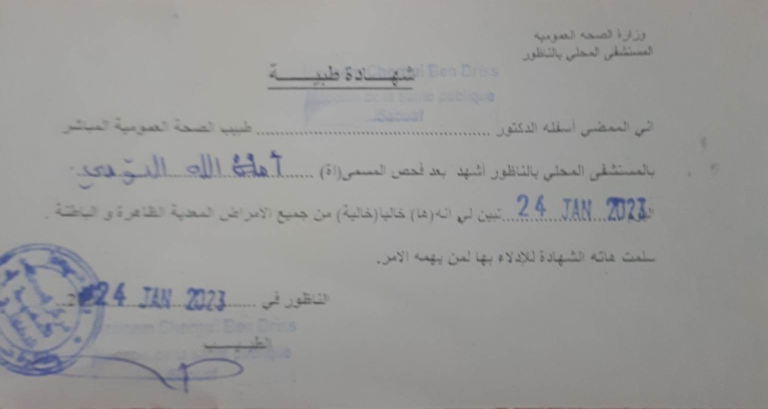 وزارة الصحه العموميه
المستشفى المحلي بالناظور
شهـــادة طبيـــة
Ben Driss
publique
اني الممضي أسفله الدكتور ........................................ طبيب الصحة العمومية المباشر
بالمستشفى المحلي بالناظور أشهد بعد فحص المسمى(اة) ...... الله
24 JAN 2023 تبين لي انه(ها) خاليا(خالية) من جميع الامراض المعدية الظاهرة و الباطنة .
سلمت هاته الشهادة للإدلاء بها لمن يهمه الامر.
الناظور في 24 JAN 2023
Ben Driss
الطبيـــب
publique